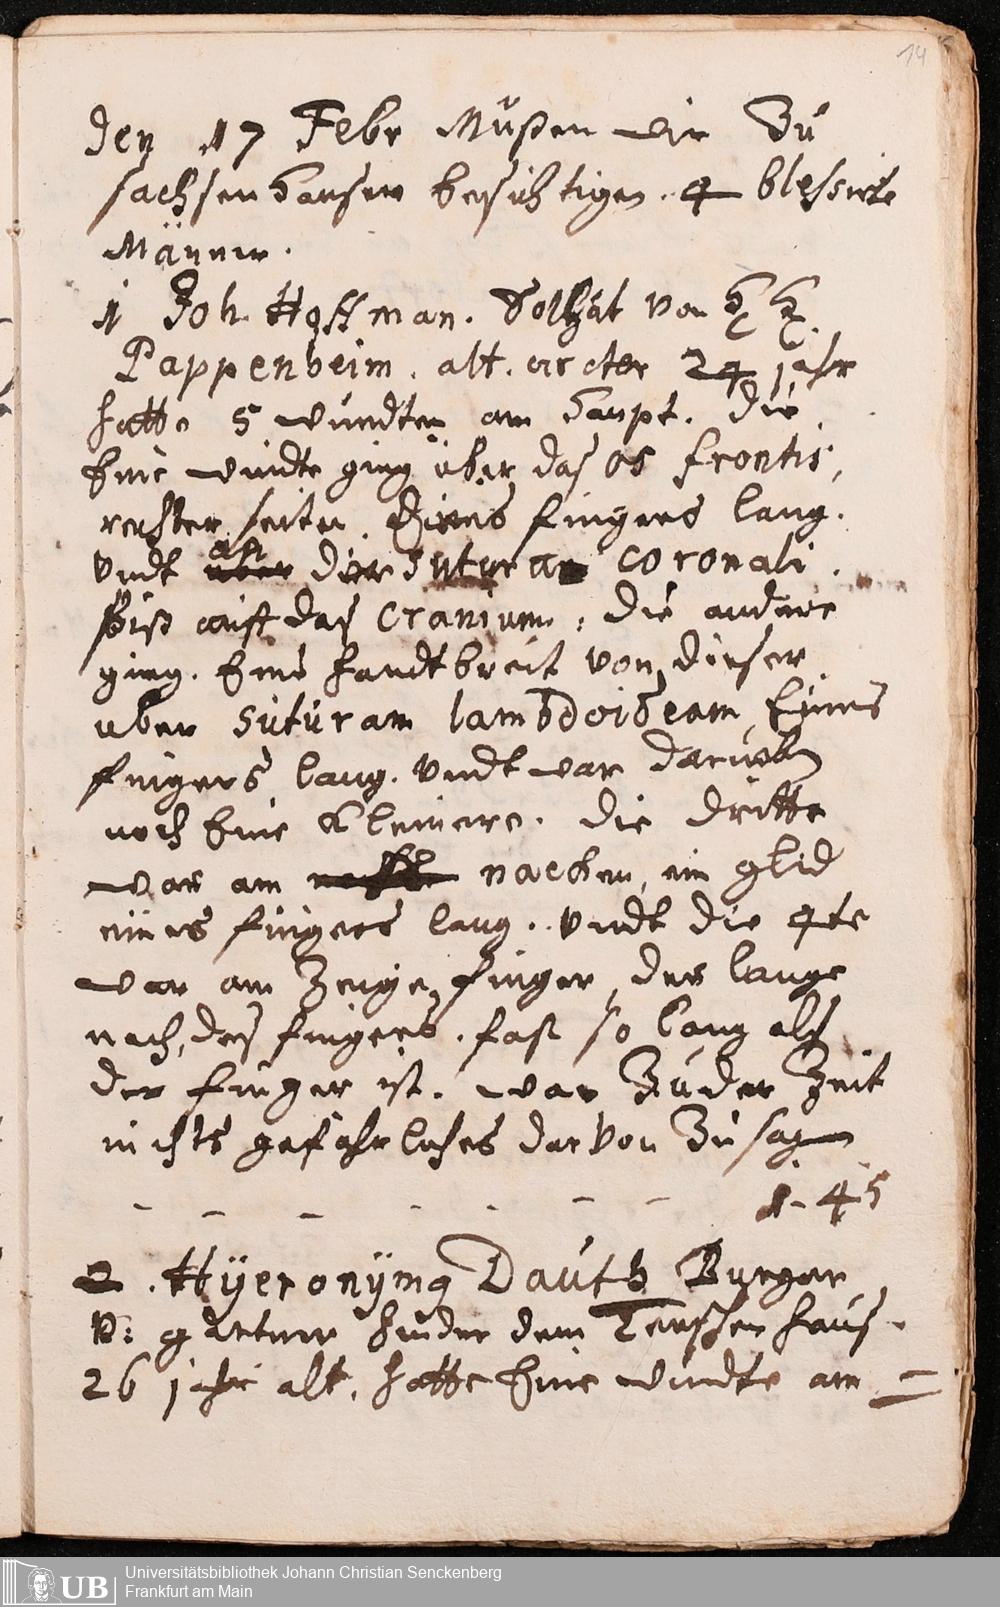 14
den 17 Febr Mußen wir Zu
sachsen Hausen besichtigen 4 blessirte
Männer.
1 Joh. Hoffman. Soldat von H H
Pappenheim. alt. 24 jahr
hatte 5 wundten am Haupt. die
Eine wundte ging über das os frontis,
rechter seiten Eines fingers lang.
Vndt an der sutura coronali.
biß auff das Cranium: die andere
ging. Eine handtbreit von dieser
uber suturam lambdoideam Eines
fingers lang. Vndt war daruber
noch Eine Kleinere. die dritte
war am nacken, ein glid
eines fingers lang. Vndt die 4te
war am Zeige finger, der lange
nach, des fingers. fast so lang als
der finger ist. war Zu der Zeit
nichts gefährliches dar von Zu sagen
- - - - - - - 1-45
2. Hÿeronÿmg Dauth Burger
V: gärtner hinder dem Teutschen hauß.
26 jahr alt. hatte Eine wundte am
UB Universitätsbibliothek Johann Christian Senckenberg
Frankfurt am Main